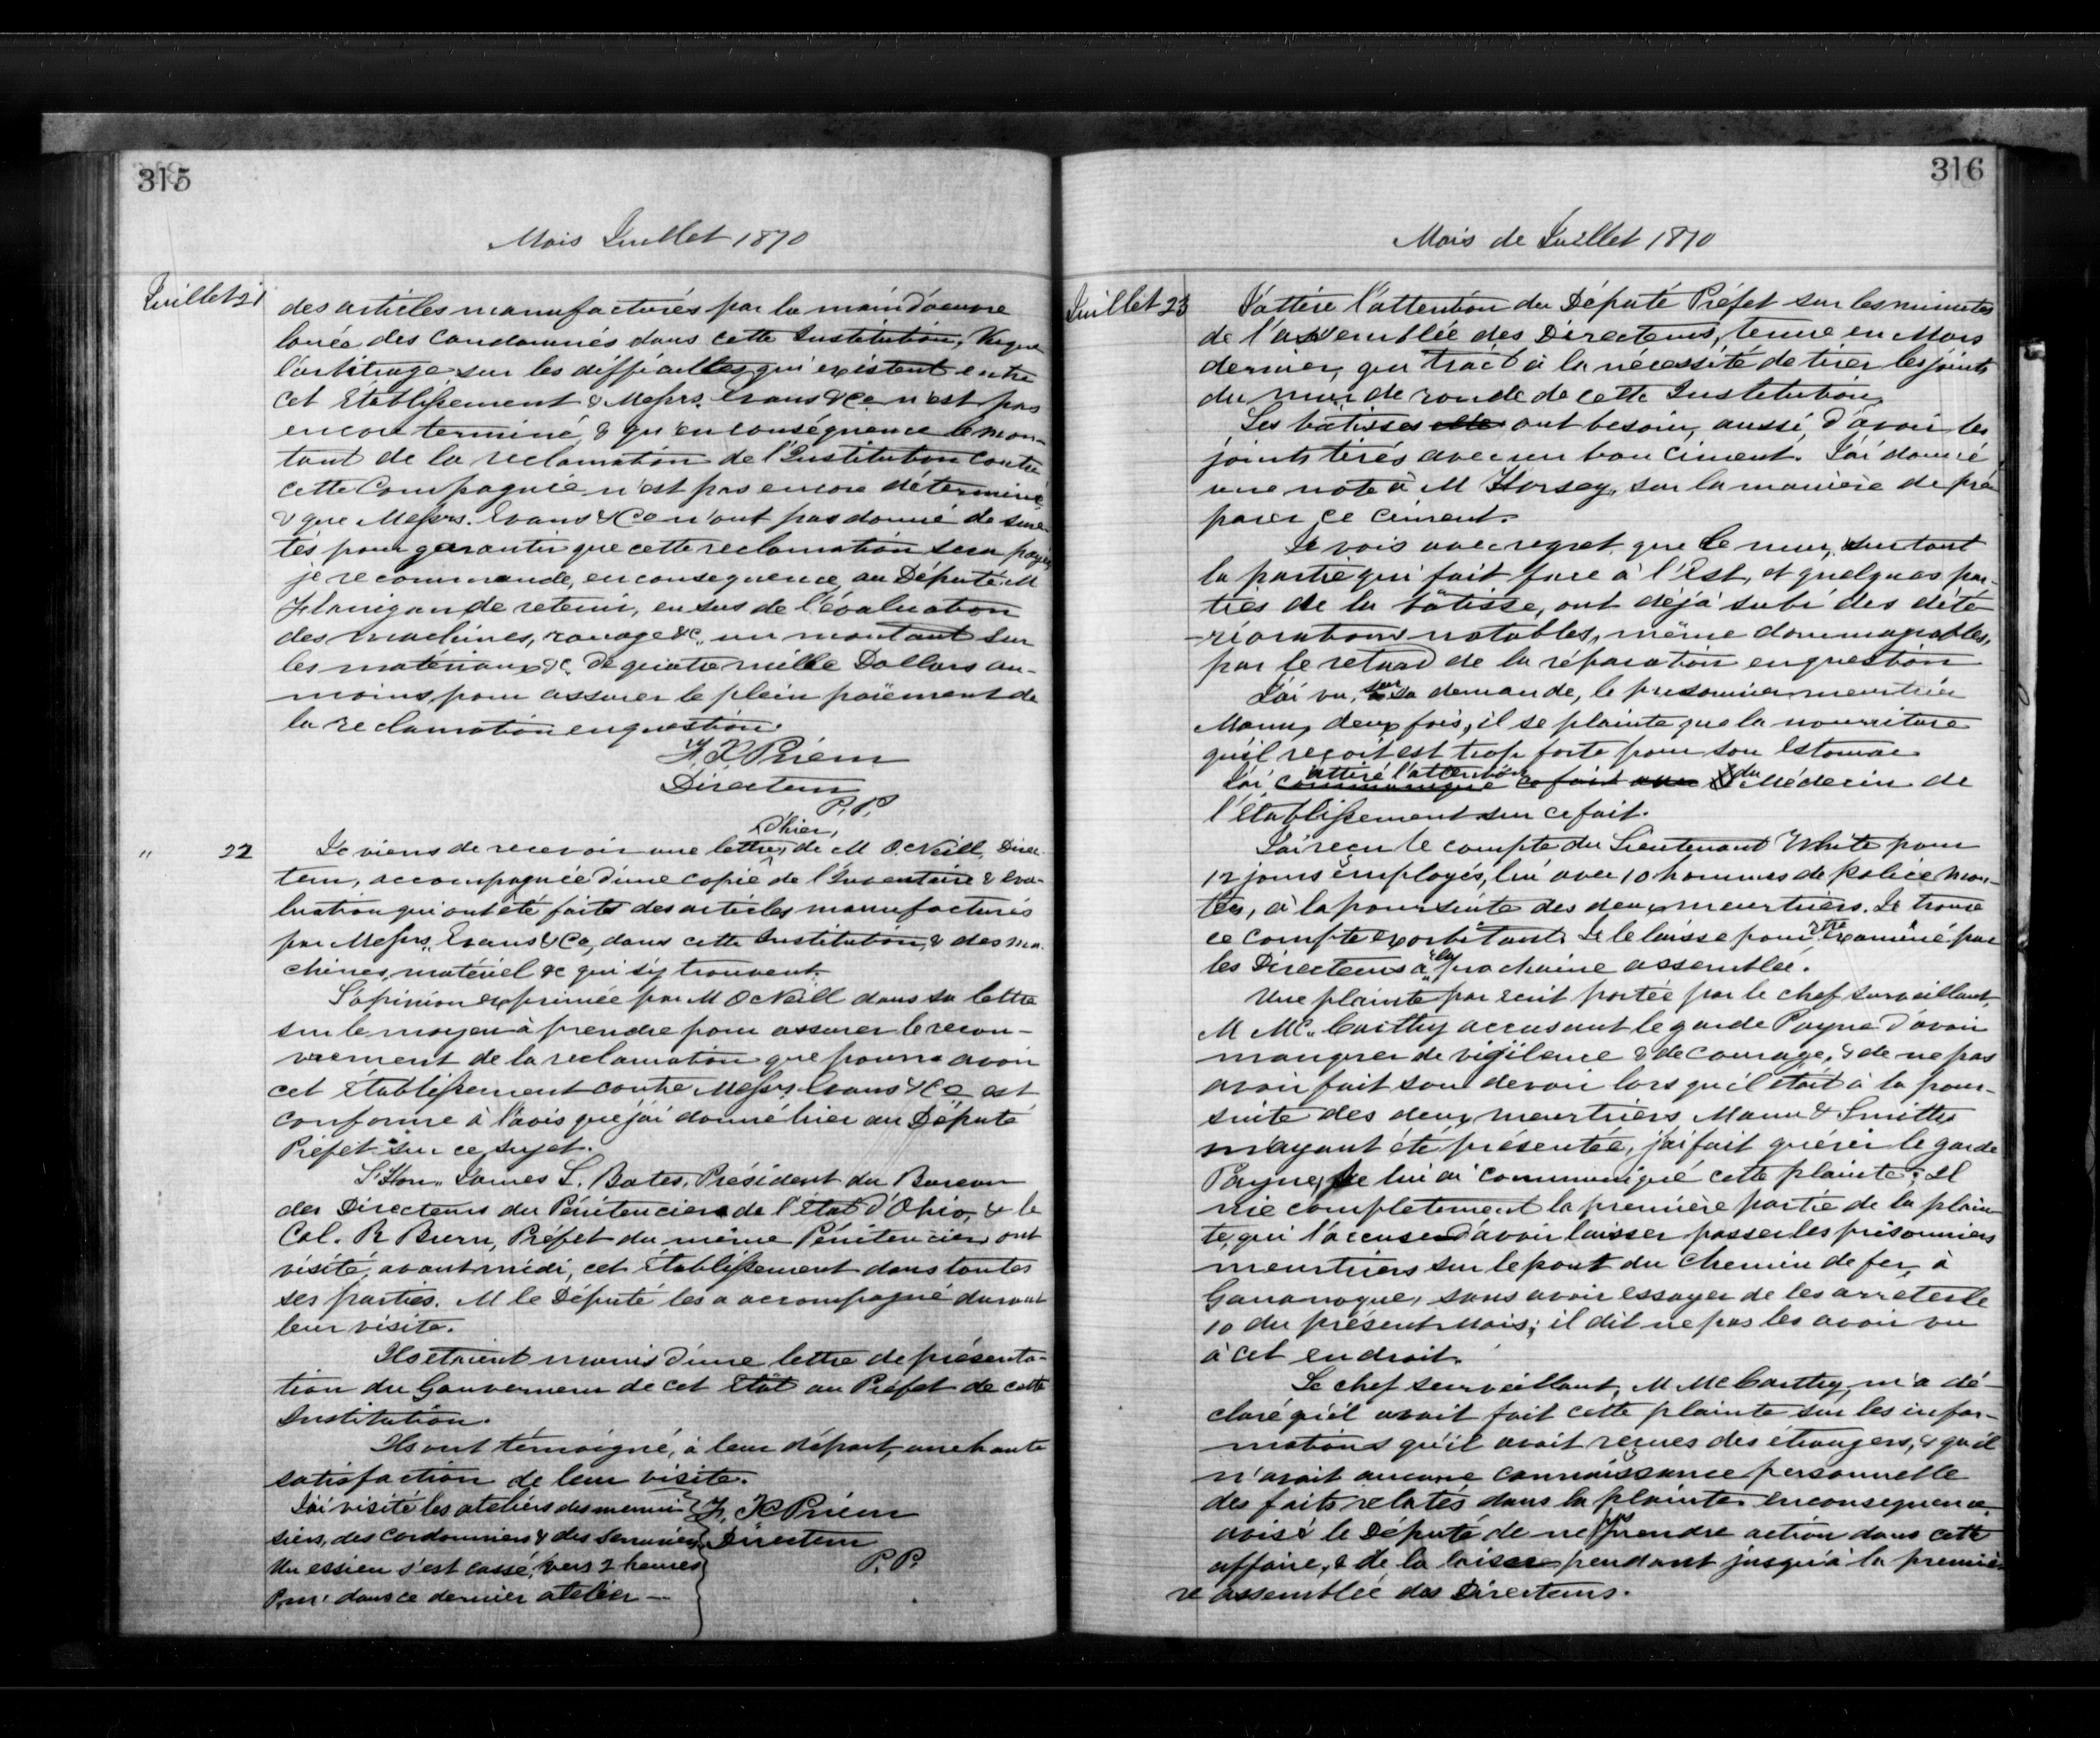 315
Mois Juillet 1870
Juillet 21
des articles manufacturés par la main d'oeuvre
louée des condamnés dans cette Institution, Vu que
l'arbitrage sur les difficultés qui existent entre
cet Etablissement & Messrs. Evans & Co n'est pas
encore terminé, & qu'en conséquence le mon-
tant de la reclamation de l'Institution contre
cette Compagnie n'est pas encore déterminé
& que Messrs. Evans & Co n'ont pas donné de sure-
tés pour garantir que cette reclamation sera payée
je recommande, en consequence, au Député M
Flanigan de retenir, en sus de l'évaluation
des machines, rouage &c, un montant sur
les matériaux &c. de quatre mille Dollars au-
moins, pour assurer le plein paiement de
la reclamation en question.
F. X Prieur
Directeur
P.P.
" 22
d'hier,
Je viens de recevoir une lettre, de M O.Neill, Direc-
teur, accompagnée d'une copie de l'Inventaire & eva-
luation qui ont été faits des articles manufacturés
par Messrs. Evans & Co, dans cette Institution, & des ma-
chines, matériel &c qui s'y trouvent.
L'opinion exprimée par M O.Neill dans sa lettre
sur le moyen à prendre pour assurer le recou-
vrement de la reclamation que pourra avoir
cet Etablissement contre Messrs Evans & Co est
conforme à l'avis que j'ai donné hier au Député
Préfet sur ce sujet.
L'Hon. James L. Bates, Président du Bureau
des Directeurs du Pénitencier de l'état d'Ohio, & le
Col. R Burr, Préfet du même Pénitencier, ont
visité, avant midi, cet Etablissement dans toutes
ses parties. M le Député les a accompagné durant
leur visite.
Ils etaient munis d'une lettre de présenta-
tion du Gouverneur de cet Etat au Préfet de cette
Institution.
Ils ont témoigné, à leur départ, une haute
satisfaction de leur visite.
J'ai visité les ateliers des menui-
siers, des cordonniers & des serruriers
Un essieu s'est cassé, vers 2 heures
P.m. dans ce dernier atelier —
F. X Prieur
Directeur
P.P.
316
Mois de Juillet 1870
Juillet 23
J'attire l'attention du Député Préfet sur les minutes
de l'assemblée des Directeurs, tenue en Mars
dernier, qui trait à la nécessité de tirer les joints
du mur de ronde de cette Institution.
Les batisses ont besoin, aussi, d'avoir les
joints tirés avec un bon ciment. J'ai donné
une note à M Horsey, sur la manière de pré-
parer ce ciment.
Je vois avec regret que le mur, surtout
la partie qui fait face à l'Est, et quelques par-
ties de la bâtisse, ont déjà subi des dété-
riorations notables, même dommageables,
par le retard de la réparation en question
J'ai vu, sur sa demande, le prisonnier meurtrier
Mann, deux fois, il se plainte que la nourriture
qu'il reçoit est trop forte pour son estomac
attiré l'attention du
J'ai communiqué ce fait avec Médecin de
l'établissement sur ce fait.
J'ai reçu le compte du Lieutenant White pour
12 jours employés, lui avec 10 hommes de police mon-
tés, à la poursuite des deux meurtriers. Je trouve
ce compte exorbitant. Je le laisse pour être examiné par
les Directeurs à la prochaine assemblée.
Une plainte par ecrit portée par le chef surveillant,
M Mc.Carthy accusant le garde Payne d'avoir
manquer de vigilence & de courage, & de ne pas
avoir fait son devoir lors qu'il était à la pour-
suite des deux meurtriers Mann & Smith,
m'ayant été présentée, j'ai fait quérir le garde
Payne, je lui ai communiqué cette plainte; Il
nie completement la première partie de la plain-
te, qui l'accuse d'avoir laisser passer les prisonniers
meurtriers sur le pont du chemin de fer, à
Gananoque, sans avoir essayer de les arreter le
10 du présent mois; il dit ne pas les avoir vu
à cet endroit.
Le chef surveillant, M Mc Carthy, m'a dé-
claré qu'il avait fait cette plainte sur les infor-
mations qu'il avait reçues des étrangers, & qu'il
n'avait aucune connaissance personnelle
des faits relatés dans la plainte. En consequence
avisé le Député de ne pas prendre action dans cette
affaire, & de la laisser pendant jusqu'à la premiè-
re assemblée des Directeurs.